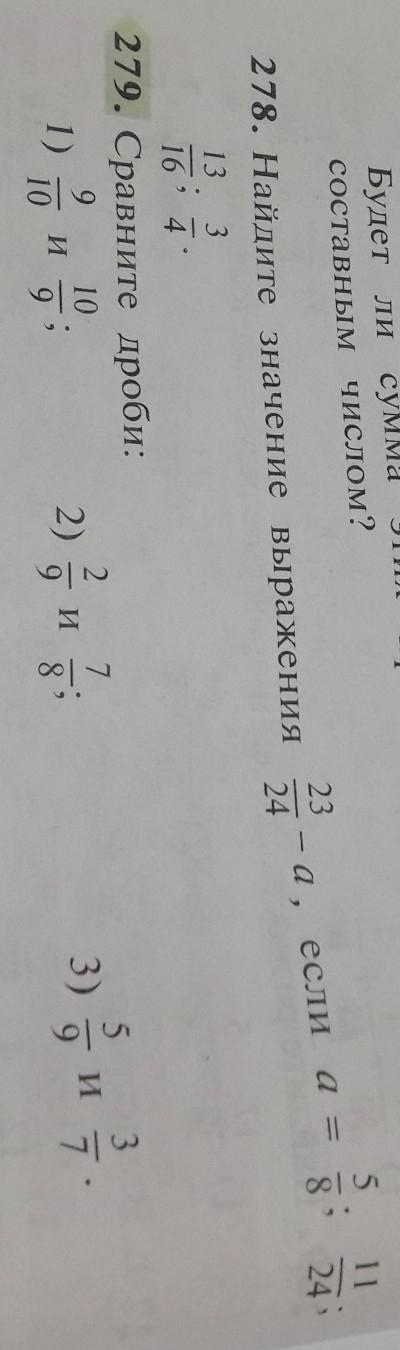 Будет ли сумма этих
составным числом?
278. Найдите значение выражения 23/24 − a, если a = 5/8; 11/24;
13/16; 3/4.
279. Сравните дроби:
1) 9/10 и 10/9; 2) 2/9 и 7/8; 3) 5/9 и 3/7.